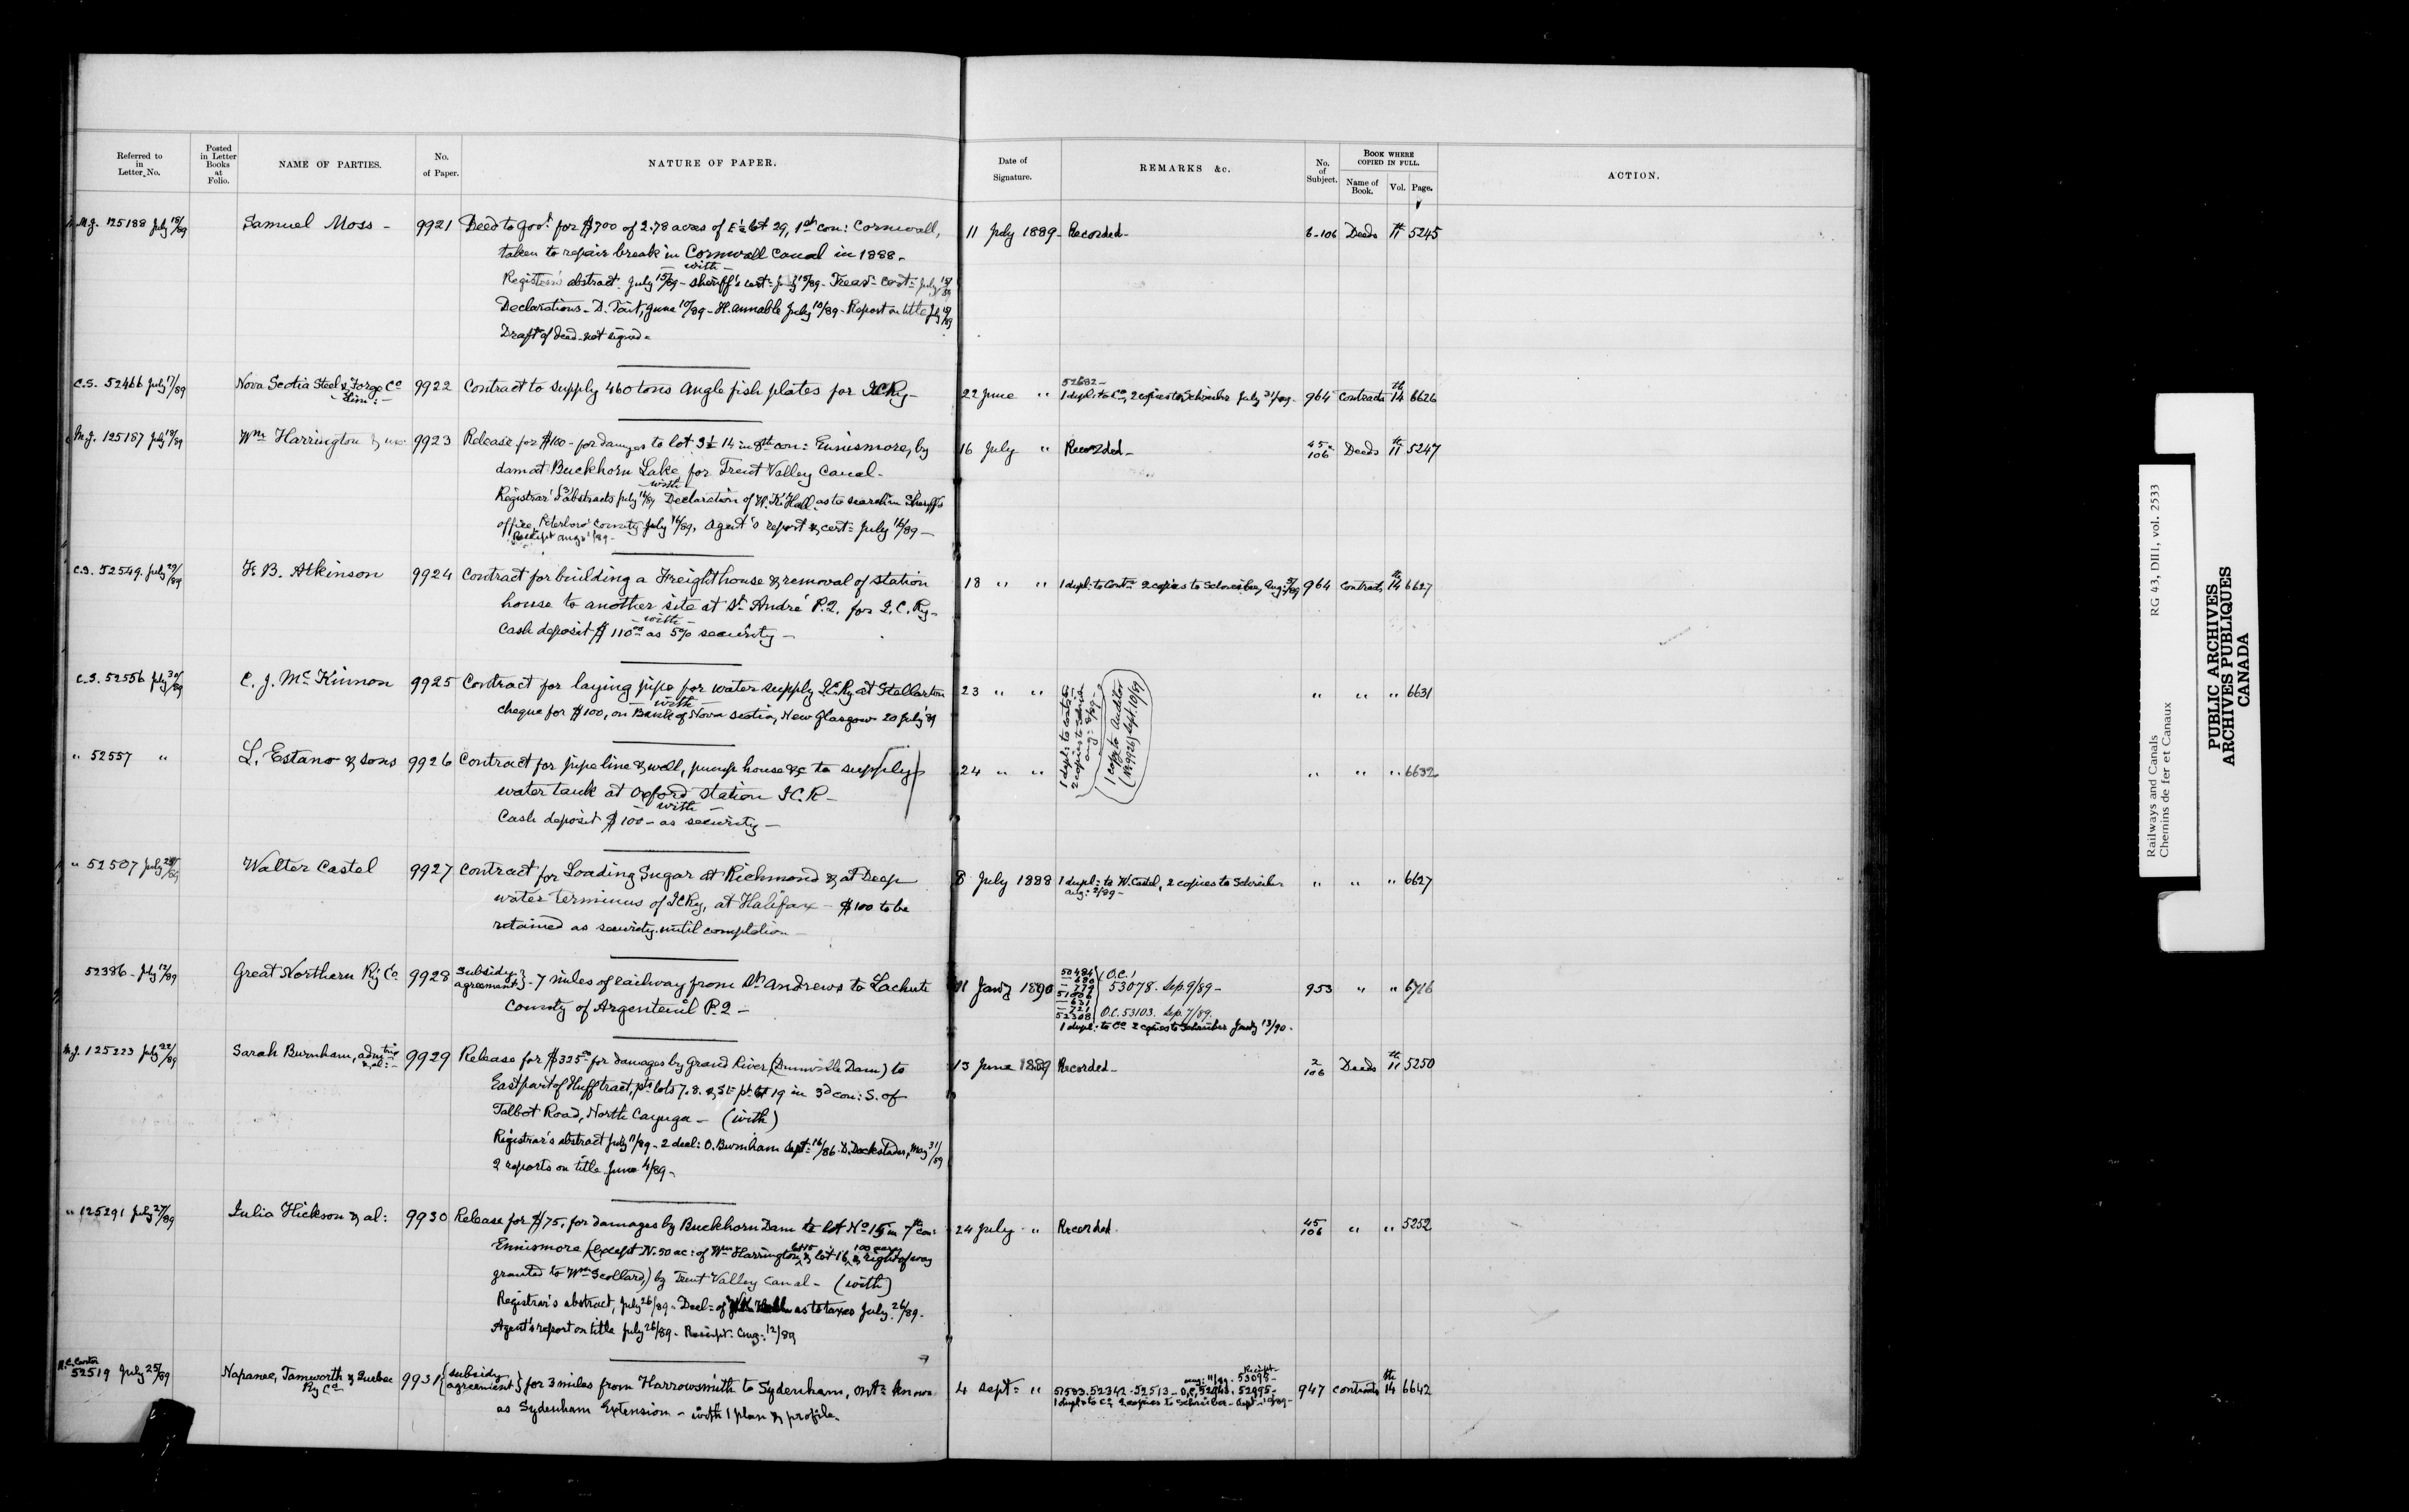 Referred to in Letter No.
Posted in Letter Books at Folio.
NAME OF PARTIES.
No. of Paper.
NATURE OF PAPER.
Date of Signature.
REMARKS &c.
No. of Subject.
BOOK WHERE COPIED IN FULL.
Name of Book.
Vol.
Page.
ACTION.
M.J. 125188 July 18/89 Samuel Moss - 9921 Deed to Govt for $700 of 2.78 acres of E½ lot 29, 1st con: Cornwall, 11 July 1889 - Recorded - 6-106 Deeds 11th 5245
taken to repair break in Cornwall Canal in 1888 -
- with -
Registrar's abstract July 15/89 - Sheriff's cert= July 15/89 - Treasr cert= July 15/89
Declarations - D. Tait, June 10/89 - H. Annable July 10/89 - Report on title July 18/89
Draft of deed - not signed -
C.S. 52466 July 17/89 Nova Scotia Steel & Forge Co 9922 Contract to supply 460 tons Angle fish plates for I.C.Ry - 22 June " 52682 -
- Lim: -
1 dupl: to Co, 2 copies to Schreiber July 31/89 - 964 Contracts 14th 6626
M.J. 125187 July 18/89 Wm Harrington & ux: 9923 Release for $100 - for damages to lot S½ 14 in 8th con: Ennismore, by 16 July " Recorded - 45/106 Deeds 11th 5247
dam at Buckhorn Lake for Trent Valley Canal -
- with -
Registrar's (3) abstracts July 16/89 Declaration of W. K. Hall as to search in Sheriff's
office, Peterboro' County July 16/89, Agent's report & cert= July 16/89 -
Receipt Aug: 1/89 -
C.S. 52549 July 29/89 F. B. Atkinson 9924 Contract for building a Freight house & removal of station 18 " " 1 dupl: to Contr 2 copies to Schreiber, Aug: 5/89 964 Contracts 14th 6627
house to another site at St André P.Q. for I.C.Ry -
- with -
Cash deposit $110.00 as 5% security -
C.S. 52556 July 30/89 C. J. McKinnon 9925 Contract for laying pipe for water supply I.C.Ry at Stellarton 23 " " " " " 6631
- with -
cheque for $100, on Bank of Nova Scotia, New Glasgow 20 July '89
1 dupl: to contr
2 copies to Schreiber
Aug: 8/89 -
1 copy to Auditor
(No 9926) Sept. 10/89
" 52557 " L. Estano & Sons 9926 Contract for pipe line & well, pump house &c to supply 24 " " " " " 6632
water tank at Oxford Station I.C.R -
- with -
Cash deposit $100 - as security -
" 52507 July 25/89 Walter Castel 9927 Contract for Loading Sugar at Richmond & at Deep 8 July 1888 1 dupl: to W. Castel, 2 copies to Schreiber " " " 6627
Aug: 2/89 -
water terminus of I.C.Ry, at Halifax - $100 to be
retained as security until completion -
52386 - July 12/89 Great Northern Ry Co 9928 Subsidy agreement } - 7 miles of railway from St Andrews to Lachute 11 Jany 1890 953 " " 6716
County of Argenteuil P.Q -
50484
O.C.
53078 - Sep 9/89 -
52308
O.C. 53103. Sep. 7/89.
1 dupl: to Co 2 copies to Schreiber Jany 13/90 -
M.J. 125223 July 22/89 Sarah Burnham, admtrix & al: - 9929 Release for $325.00 for damages by Grand River, (Dunnville Dam) to 13 June 1889 Recorded - 2/106 Deeds 11th 5250
East part of Huff tract, pts lots 7. 8. & S½ pt lot 19 in 3d con: S. of
Talbot Road, North Cayuga - (with)
Registrar's abstract July 11/89 - 2 decl: O. Burnham Sept= 16/86 D. Dockstader, May 31/89
2 reports on title June 4/89 -
" 125291 July 27/89 Julia Hickson & al: 9930 Release for $75, for damages by Buckhorn Dam to lot No 15 in 7th con: 24 July " Recorded 45/106 " " 5252
Ennismore (except N. 50 ac: of Wm Harrington, lot 15 & lot 16, 100 acres & right of way
granted to Wm Scollard,) by Trent Valley Canal - (with)
Registrar's abstract, July 26/89 - Decl= of as to taxes July 26/89 -
Agent's report on title July 26/89 - Receipt - Aug: 12/89
52519 July 25/89 Napanee, Tamworth & Quebec Ry Co 9931 { Subsidy agreement } for 3 miles from Harrowsmith to Sydenham, Ont= known 4 Sept= " 947 Contracts 14th 6642
as Sydenham Extension - with 1 plan & profile -
Receipt -
Aug: 11/89 - 53095 -
51583. 52342 - 52513 - O.C. 52943. 52995 -
1 dupl: to Co, 2 copies to Schreiber - Sept - 13/89 -
Railways and Canals
Chemins de fer et Canaux
RG 43, DIII1, vol. 2533
PUBLIC ARCHIVES
ARCHIVES PUBLIQUES
CANADA